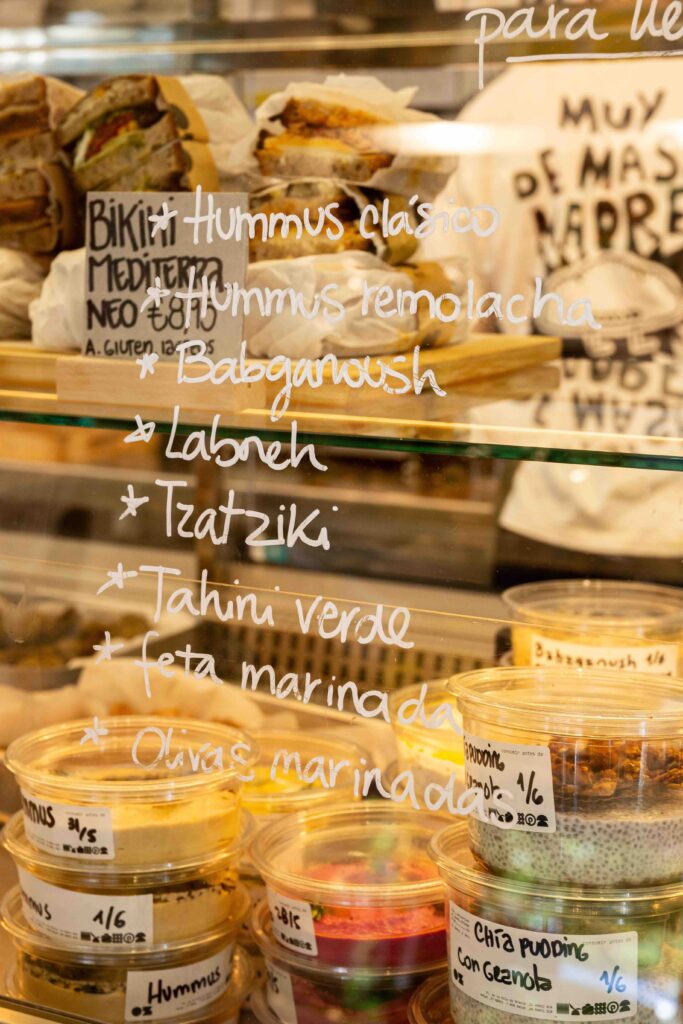 para lle
MUY
DE MAS
MADRE
BiKiNi
MEDiTERRA
NEO €8,45
* Hummus clásico
* Hummus remolacha
* Babganoush
* Labneh
* Tzatziki
* Tahini verde
* feta marinada
* Olivas marinadas
Babaganoush 1/6
PUDDING
1/6
HUMMUS 31/5
1/6
28/5
Hummus
consumir antes de
CHÍA PUDDING
CON GRANOLA 1/6